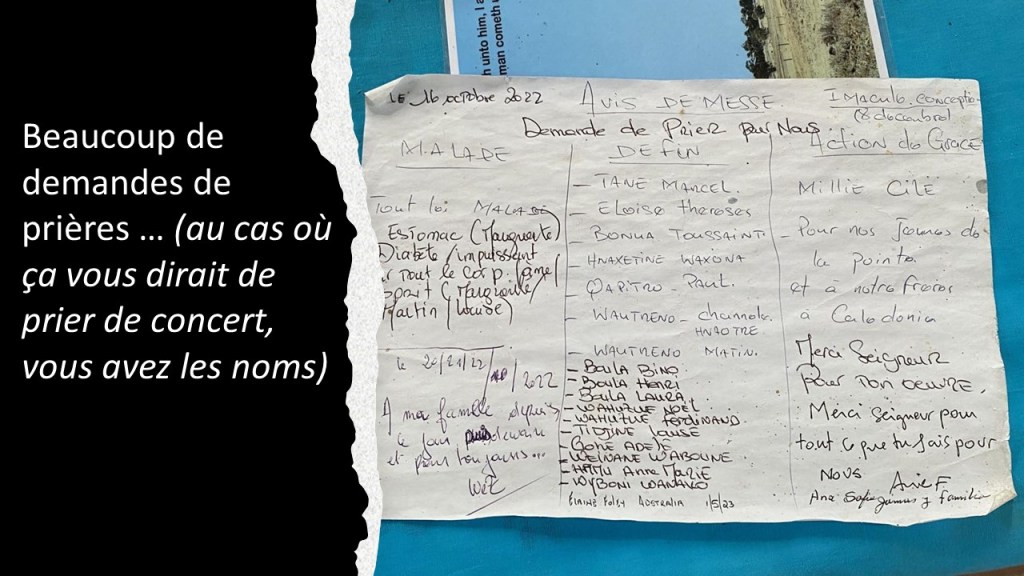 Beaucoup de
demandes de
prières … (au cas où
ça vous dirait de
prier de concert,
vous avez les noms)
h unto him, I a
man cometh u
LE 16 octobre 2022
AVIS DE MESSE
IMACULO. CONCEPTIO
(8 décembre)
Demande de PRIER pour Nous
MALADE
Tout loi MALADE
ESTOMAC (Marguerite)
Diabète / impuissant
sur tout le corp. (âme/
Esprit (
Martin / Louise)
le 20/21/22/ /2022
A ma famille depuis
le jour
et pour toujours...
DEFIN
- TANE MARCEL.
- ELOISE theroses
- BONUA TOUSSAINT
- HNAXETINE WAXONA
- QAPITRO - Paul.
- WAUTRENO - channole.
HNAOTRE.
- WAUTRENO MATIN.
- BOULA BINO
- BOULA HENRI
- BOULA LAURA
- WAHUZUE NOËL
- WAHUZUE FERDINAND.
- TIDJINE LOUISE
- GOHE ADELE
- WEINANE WABOUNE
- Anne MARIE
- WYBONI WANAXO
ELAINE FOLEY AUSTRALIA 1/5/23
ACTION de GRACE
MILLIE CILE
- Pour nos Jeunes de
la pointe
et à notre freres
à Caledonia
Merci Seigneur
pour TON OEUVRE.
Merci Seigneur pour
tout ce que tu fais pour
NOUS
Ana Sofia y familia